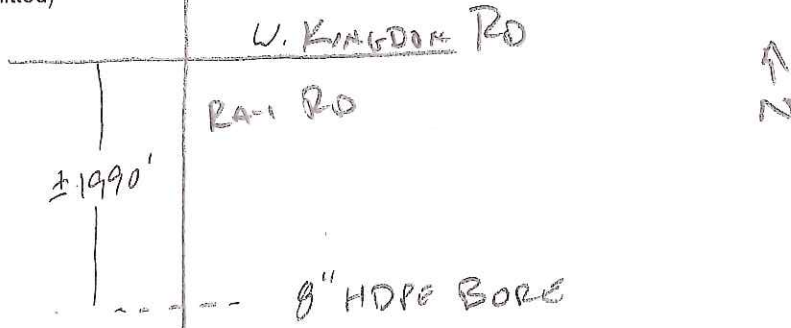 W. KINGDON RD
RAI RD
±1990'
N
8" HDPE BORE